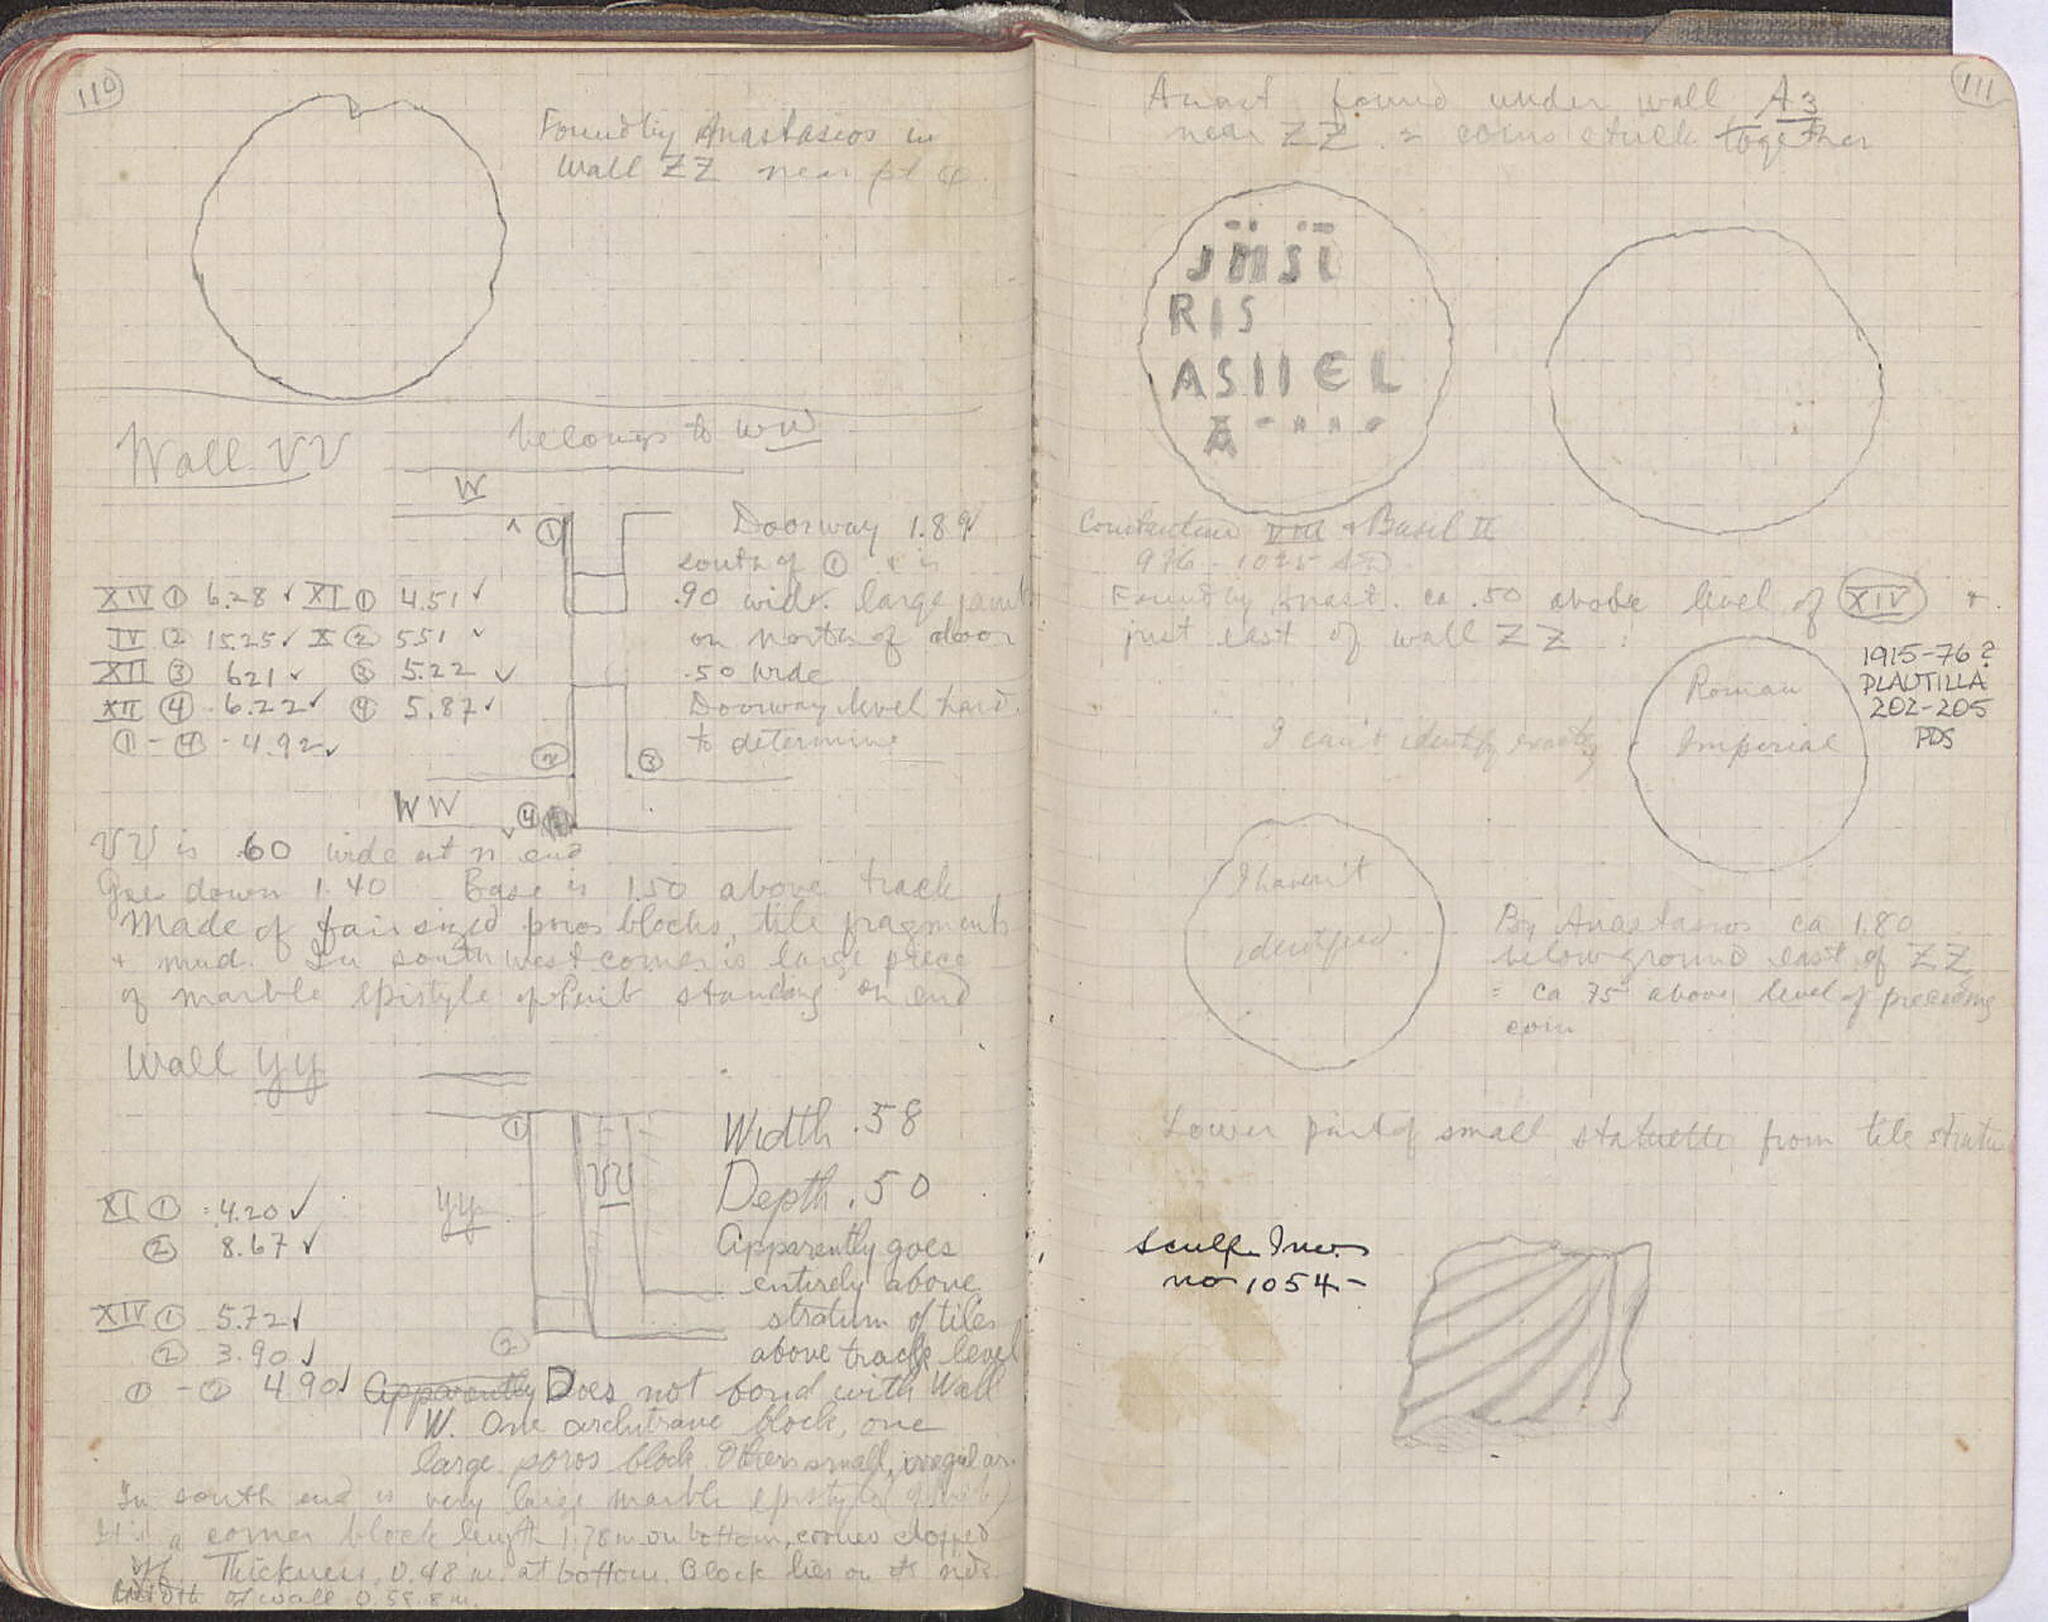 110
Found by Anastasios in
Wall ZZ near pt φ.
Wall VV belongs to WW
W
① Doorway 1.89✓
south of ① & is
.90 wide. large jamb
on north of door
.50 wide
Doorway level hard
to determine
XIV ① 6.28 ✓ XI ① 4.51 ✓
IV ② 15.25 ✓ X ② 551 ✓
XII ③ 621 ✓ ③ 5.22 ✓
XII ④ 6.22 ✓ ④ 5.87 ✓
①-④ - 4.92 ✓
② ③
WW ④
VV is .60 wide at n end
Goes down 1.40 Base is 1.50 above track
Made of fair sized poros blocks, tile fragments
+ mud. In southwest corner is large piece
of marble epistyle of standing on end
Wall YY
①
VV
YY
②
Width .58
Depth .50
Apparently goes
entirely above
stratum of tiles
above track level
XI ① = 4.20 ✓
② 8.67 ✓
XIV ① 5.72 ✓
② 3.90 ✓
① - ② 4.90 ✓ Apparently Does not bond with Wall
W. One architrave block, one
large poros block. Others small, irregular.
In south end is very large marble epistyle
It is a corner block length 1.78 m on bottom, corner chopped
off. Thickness, 0.48 m. at bottom. Block lies on its side.
Width of wall
111
Anast found under wall A3
near ZZ. 2 coins stuck together
RIS
ASIIEL
Constantine VIII & Basil II
976 - 1025 AD
Found by Anast. ca .50 above level of XIV +
just east of wall ZZ :
1915-76?
PLAUTILLA
202-205
PDS
Roman
Imperial
I can't identify exactly
I haven't
identified.
By Anastasios ca 1.80
below ground east of ZZ
= ca 75 above level of preceding
coin
Lower part of small statuette from tile stratum
Sculp. Inv.
no 1054-